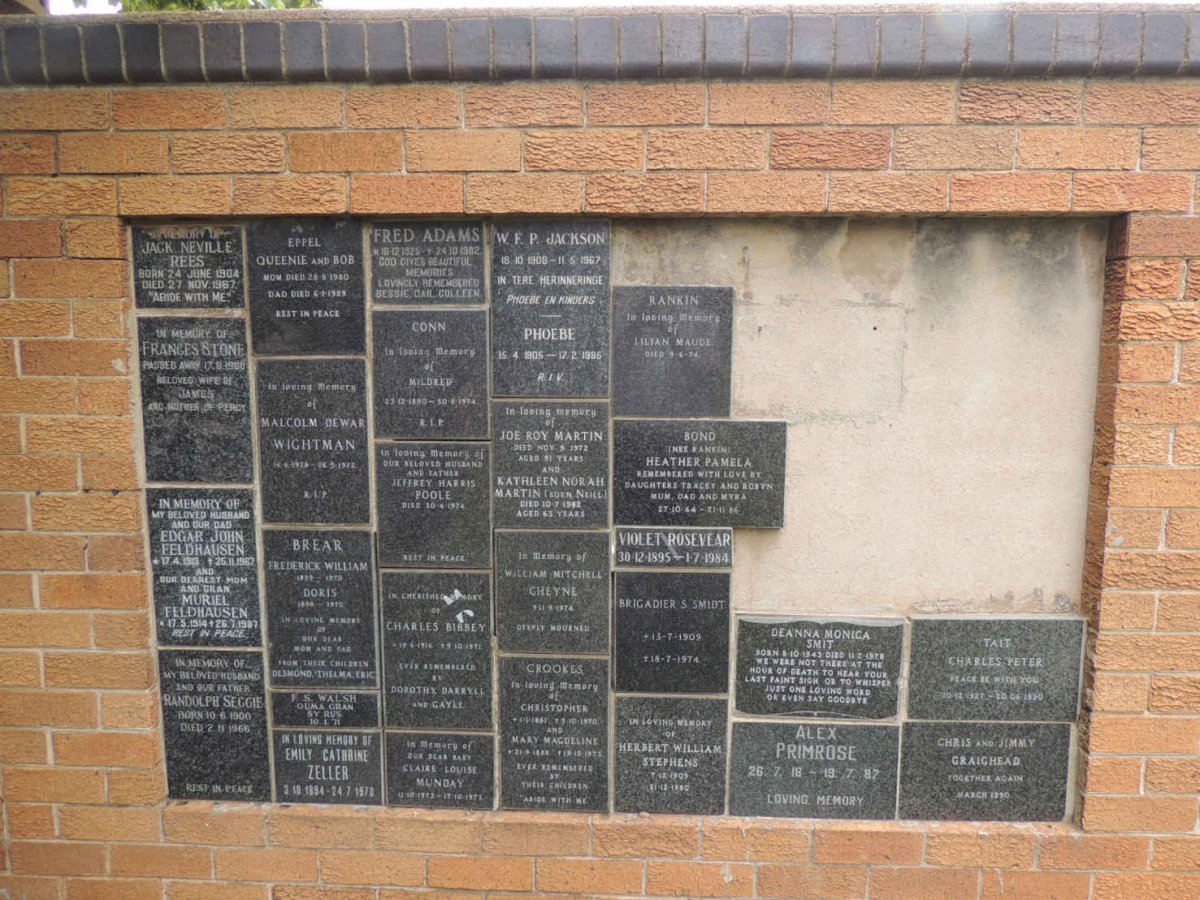 IN MEMORY OF
JACK NEVILLE
REES
BORN 24 JUNE 1904
DIED 27 NOV. 1967.
"ABIDE WITH ME"
IN MEMORY OF
FRANCES STONE
PASSED AWAY 17.8.1966
BELOVED WIFE OF
JAMES
AND MOTHER OF PERCY
IN MEMORY OF
MY BELOVED HUSBAND
AND OUR DAD
EDGAR JOHN
FELDHAUSEN
*17.4.1913 †25.11.1967
AND
OUR DEAREST MOM
AND GRAN
MURIEL
FELDHAUSEN
*17.5.1914 †26.7.1987
REST IN PEACE.
IN MEMORY OF
MY BELOVED HUSBAND
AND OUR FATHER
RANDOLPH SEGGIE
BORN 10.6.1900
DIED 2.11.1966
REST IN PEACE
EPPEL
QUEENIE AND BOB
MOM DIED 28·8·1980
DAD DIED 6·1·1989
REST IN PEACE
In loving Memory
of
MALCOLM DEWAR
WIGHTMAN
16·6·1928 - 26·5·1972
R.I.P.
BREAR
FREDERICK WILLIAM
1899 - 1970
DORIS
1898 - 1970
IN LOVING MEMORY
OF
OUR DEAR
MOM AND DAD
FROM THEIR CHILDREN
DESMOND, THELMA, ERIC
F. S. WALSH
OUMA GRAN
SY RUS
10.1.71
IN LOVING MEMORY OF
EMILY CATHRINE
ZELLER
3·10·1894 - 24·7·1970
FRED ADAMS
*18·12·1925 - †24·10·1982
GOD GIVES BEAUTIFUL
MEMORIES
LOVINGLY REMEMBERED
BESSIE, GAIL, COLLEEN
CONN
In loving Memory
of
MILDRED
23·12·1890 - 30·8·1974
R.I.P.
In loving Memory of
OUR BELOVED HUSBAND
AND FATHER
JEFFREY HARRIS
POOLE
DIED 30·4·1974
REST IN PEACE
IN CHERISHED MEMORY
OF
CHARLES BIBBEY
*19·6·1916 †9·10·1971
EVER REMEMBERED
BY
DOROTHY DARRYLL
AND GAYLE.
In Memory of
OUR DEAR BABY
CLAIRE LOUISE
MUNDAY
11·10·1973 - 17·10·1973
W. F. P. JACKSON
18. 10. 1908 - 11. 5. 1967
IN TERE HERINNERINGE
PHOEBE EN KINDERS
PHOEBE
15. 4. 1905 — 17. 2. 1985
R.I.V.
In loving memory of
JOE ROY MARTIN
DIED NOV. 9. 1972
AGED 51 YEARS
AND
KATHLEEN NORAH
MARTIN (BORN NEILL)
DIED 10·7·1982
AGED 63 YEARS
In Memory of
WILLIAM MITCHELL
CHEYNE
†11·9·1974
DEEPLY MOURNED
CROOKES
In loving Memory of
CHRISTOPHER
AND
MARY MAGDELINE
EVER REMEMBERED
BY
THEIR CHILDREN
"ABIDE WITH ME"
RANKIN
In loving Memory
of
LILIAN MAUDE
DIED 9·6·74.
BOND
(NEE RANKIN)
HEATHER PAMELA
REMEMBERED WITH LOVE BY
DAUGHTERS TRACEY AND ROBYN
MUM, DAD AND MYRA
27·10·44 - 21·11·86
VIOLET ROSEVEAR
30·12·1895—1·7·1984
BRIGADIER S. SMIDT
*13·7·1909
†18·7·1974
IN LOVING MEMORY
OF
HERBERT WILLIAM
STEPHENS
*7·12·1909
†21·12·1980
DEANNA MONICA
SMIT
BORN 8·10·1943 DIED 11·2·1978
WE WERE NOT THERE AT THE
HOUR OF DEATH TO HEAR YOUR
LAST FAINT SIGH OR TO WHISPER
JUST ONE LOVING WORD
OR EVEN SAY GOODBYE
TAIT
CHARLES PETER
PEACE BE WITH YOU
10·12·1927 - 20·06·1990
ALEX
PRIMROSE
26. 7. 18 - 19. 7. 87
LOVING MEMORY
CHRIS AND JIMMY
GRAIGHEAD
TOGETHER AGAIN
MARCH 1990